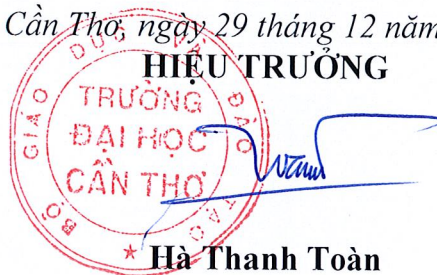 Cần Thơ, ngày 29 tháng 12 năm
HIỆU TRƯỞNG
BỘ GIÁO DỤC VÀ ĐÀO TẠO
TRƯỜNG
ĐẠI HỌC
CẦN THƠ
Hà Thanh Toàn